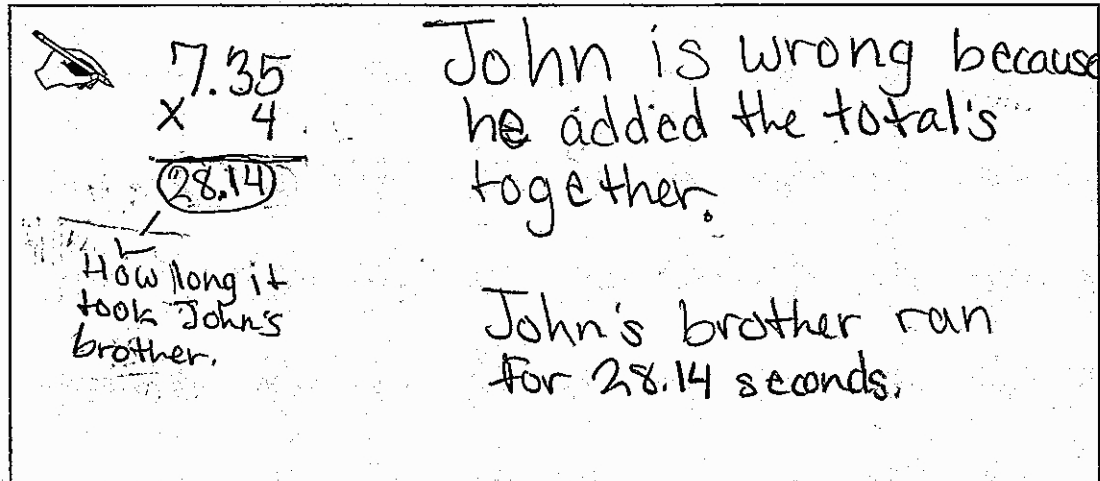 7.35
x 4
28.14
How long it
took John's
brother.
John is wrong because
he added the total's
together.
John's brother ran
for 28.14 seconds.